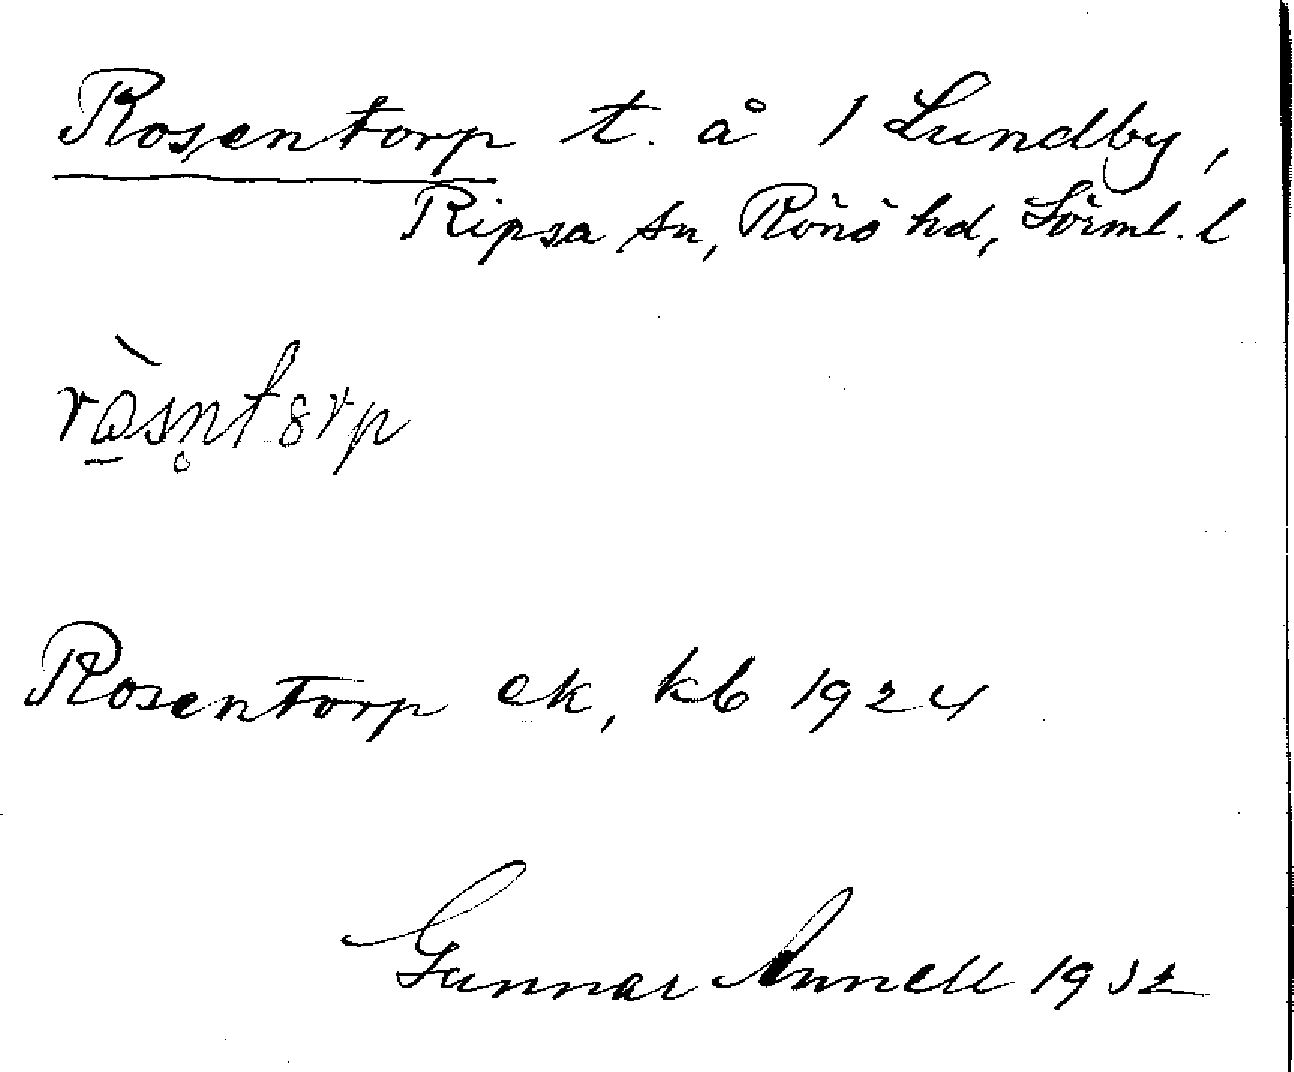 Rosentorp t. å 1 Lundby,
Ripsa sn, Rönö hd, Sörml. l
Rosentorp ek, kb 1924
Gunnar Annell 1932